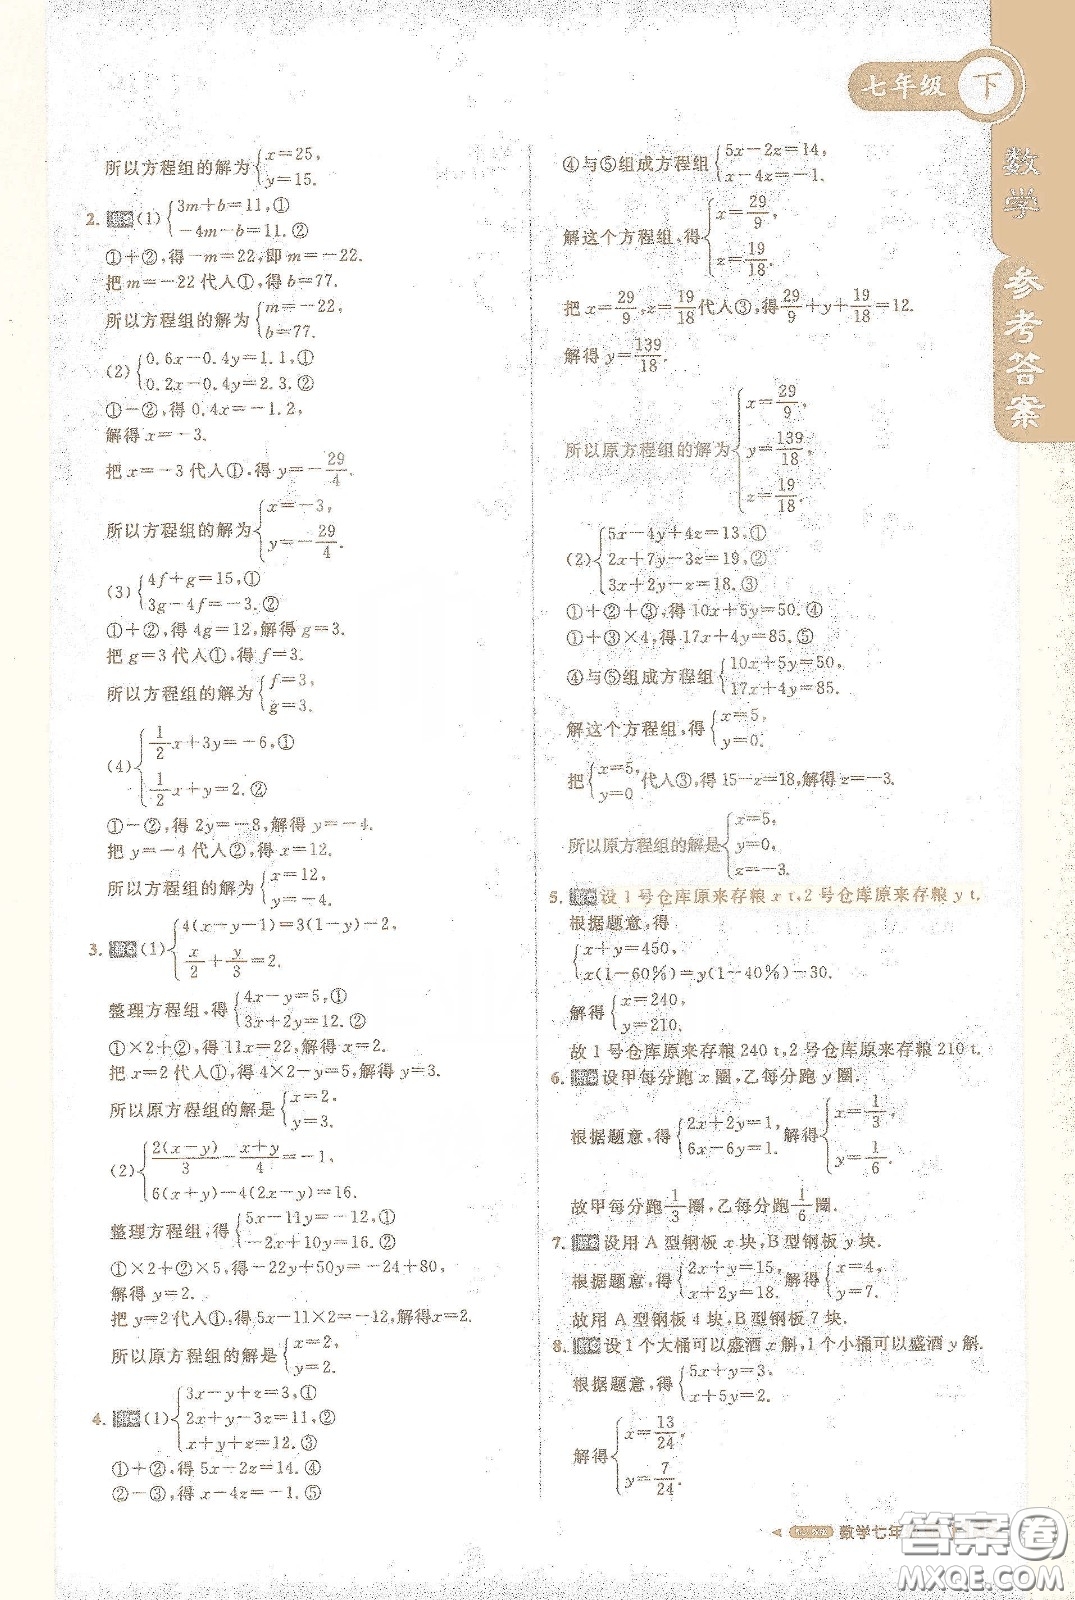 七年级 下
数学 参考答案
所以方程组的解为{x=25,
y=15.
2. (1){3m+b=11,①
-4m-b=11.②
①+②,得-m=22,即m=-22.
把m=-22代入①,得b=77.
所以方程组的解为{m=-22,
b=77.
(2){0.6x-0.4y=1.1,①
0.2x-0.4y=2.3.②
①-②,得0.4x=-1.2,
解得x=-3.
把x=-3代入①,得y=-29/4.
所以方程组的解为{x=-3,
y=-29/4.
(3){4f+g=15,①
3g-4f=-3.②
①+②,得4g=12,解得g=3.
把g=3代入①,得f=3.
所以方程组的解为{f=3,
g=3.
(4){1/2x+3y=-6,①
1/2x+y=2.②
①-②,得2y=-8,解得y=-4.
把y=-4代入②,得x=12.
所以方程组的解为{x=12,
y=-4.
3. (1){4(x-y-1)=3(1-y)-2,
x/2+y/3=2.
整理方程组,得{4x-y=5,①
3x+2y=12.②
①×2+②,得11x=22,解得x=2.
把x=2代入①,得4×2-y=5,解得y=3.
所以原方程组的解是{x=2,
y=3.
(2){2(x-y)/3-(x+y)/4=-1,
6(x+y)-4(2x-y)=16.
整理方程组,得{5x-11y=-12,①
-2x+10y=16.②
①×2+②×5,得-22y+50y=-24+80,
解得y=2.
把y=2代入①,得5x-11×2=-12,解得x=2.
所以原方程组的解是{x=2,
y=2.
4. (1){3x-y+z=3,①
2x+y-3z=11,②
x+y+z=12.③
①+②,得5x-2z=14.④
②-③,得x-4z=-1.⑤
④与⑤组成方程组{5x-2z=14,
x-4z=-1.
解这个方程组,得{x=29/9,
z=19/18.
把x=29/9,z=19/18代入③,得29/9+y+19/18=12.
解得y=139/18.
所以原方程组的解为{x=29/9,
y=139/18,
z=19/18.
(2){5x-4y+4z=13,①
2x+7y-3z=19,②
3x+2y-z=18.③
①+②+③,得10x+5y=50.④
①+③×4,得17x+4y=85.⑤
④与⑤组成方程组{10x+5y=50,
17x+4y=85.
解这个方程组,得{x=5,
y=0.
把{x=5,
y=0代入③,得15-z=18,解得z=-3.
所以原方程组的解是{x=5,
y=0,
z=-3.
5. 设1号仓库原来存粮x t,2号仓库原来存粮y t.
根据题意,得
{x+y=450,
x(1-60%)=y(1-40%)-30.
解得{x=240,
y=210.
故1号仓库原来存粮240 t,2号仓库原来存粮210 t.
6. 设甲每分跑x圈,乙每分跑y圈.
根据题意,得{2x+2y=1,
6x-6y=1.解得{x=1/3,
y=1/6.
故甲每分跑1/3圈,乙每分跑1/6圈.
7. 设用A型钢板x块,B型钢板y块.
根据题意,得{2x+y=15,
x+2y=18. 解得{x=4,
y=7.
故用A型钢板4块,B型钢板7块.
8. 设1个大桶可以盛酒x斛,1个小桶可以盛酒y斛.
根据题意,得{5x+y=3,
x+5y=2.
解得{x=13/24,
y=7/24.
数学七年
答案圈
MXQE.COM